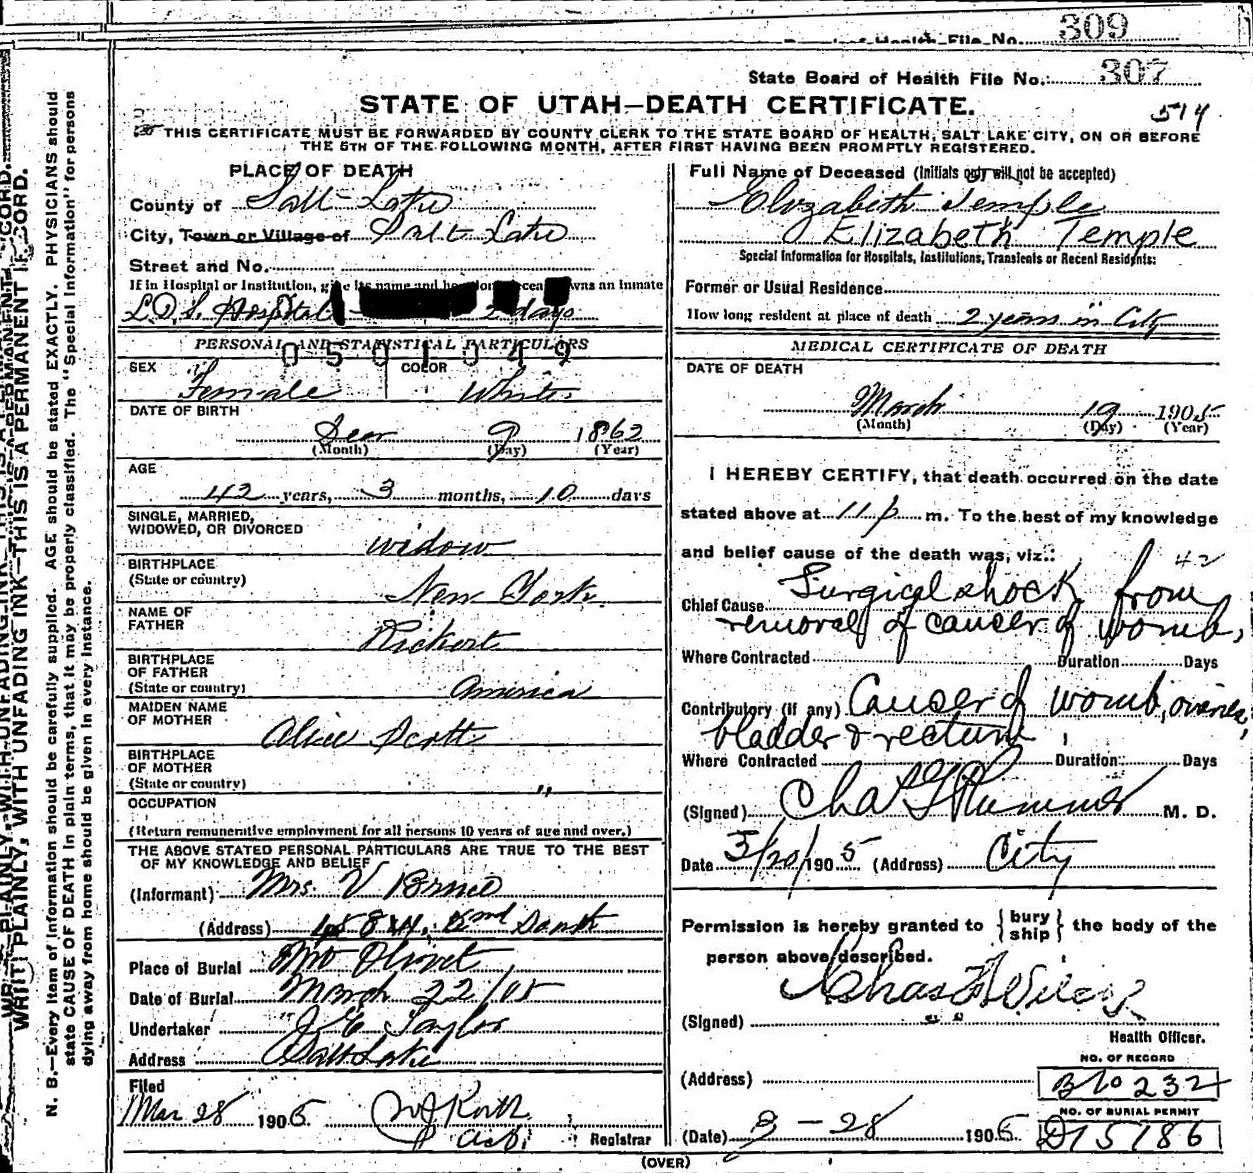 309
Health File No.
State Board of Health File No. 307
STATE OF UTAH—DEATH CERTIFICATE.
514
THIS CERTIFICATE MUST BE FORWARDED BY COUNTY CLERK TO THE STATE BOARD OF HEALTH, SALT LAKE CITY, ON OR BEFORE
THE 5TH OF THE FOLLOWING MONTH, AFTER FIRST HAVING BEEN PROMPTLY REGISTERED.
WRITE PLAINLY, WITH UNFADING INK—THIS IS A PERMANENT RECORD.
N. B.—Every item of information should be carefully supplied. AGE should be stated EXACTLY. PHYSICIANS should
state CAUSE OF DEATH in plain terms, that it may be properly classified. The "Special Information" for persons
dying away from home should be given in every instance.
PLACE OF DEATH
County of Salt Lake
City, Town or Village of Salt Lake
Street and No.
If in Hospital or Institution, give its name and
was an inmate
L.D.S. Hospital 2 days
PERSONAL AND STATISTICAL PARTICULARS
0501049
SEX Female COLOR White
DATE OF BIRTH
9 1862
(Month) (Day) (Year)
AGE
42 years, 3 months, 10 days
SINGLE, MARRIED,
WIDOWED, OR DIVORCED widow
BIRTHPLACE
(State or country) New York
NAME OF
FATHER Rickert
BIRTHPLACE
OF FATHER
(State or country) America
MAIDEN NAME
OF MOTHER Alice Scott
BIRTHPLACE
OF MOTHER
(State or country) "
OCCUPATION
(Return remunerative employment for all persons 10 years of age and over.)
THE ABOVE STATED PERSONAL PARTICULARS ARE TRUE TO THE BEST
OF MY KNOWLEDGE AND BELIEF
(Informant) Mrs. V Bruce
(Address) 2nd South
Place of Burial Mt Olivet
Date of Burial March 22/05
Undertaker Taylor
Address Salt Lake
Filed
Mar 28 1905
Registrar
Full Name of Deceased (Initials only will not be accepted)
Elizabeth Temple
Elizabeth Temple
Special Information for Hospitals, Institutions, Transients or Recent Residents:
Former or Usual Residence
How long resident at place of death 2 years in City
MEDICAL CERTIFICATE OF DEATH
DATE OF DEATH
March 19 1905
(Month) (Day) (Year)
I HEREBY CERTIFY, that death occurred on the date
stated above at 11 p m. To the best of my knowledge
and belief cause of the death was, viz.: 42
Chief Cause Surgical shock from
removal of cancer of womb,
Where Contracted Duration Days
Contributory (if any) Cancer of womb, ovaries,
bladder & rectum
Where Contracted Duration Days
(Signed) Chas G Plummer M. D.
Date 3/20/1905 (Address) City
Permission is hereby granted to {bury
ship} the body of the
person above described.
(Signed) Chas
Health Officer.
NO. OF RECORD
(Address) B10232
NO. OF BURIAL PERMIT
(Date) 3-28 1905 D15186
(OVER)